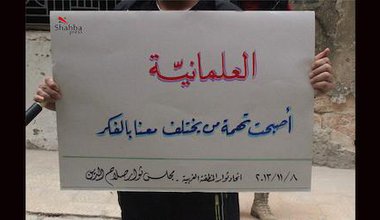 Shahba
press
العلمانيّة
أصبحت تهمة من يختلف معنا بالفكر
٢٠١٣/١١/٨ اتحاد ثوار المنطقة الغربية - مجلس ثوار صلاح الدين